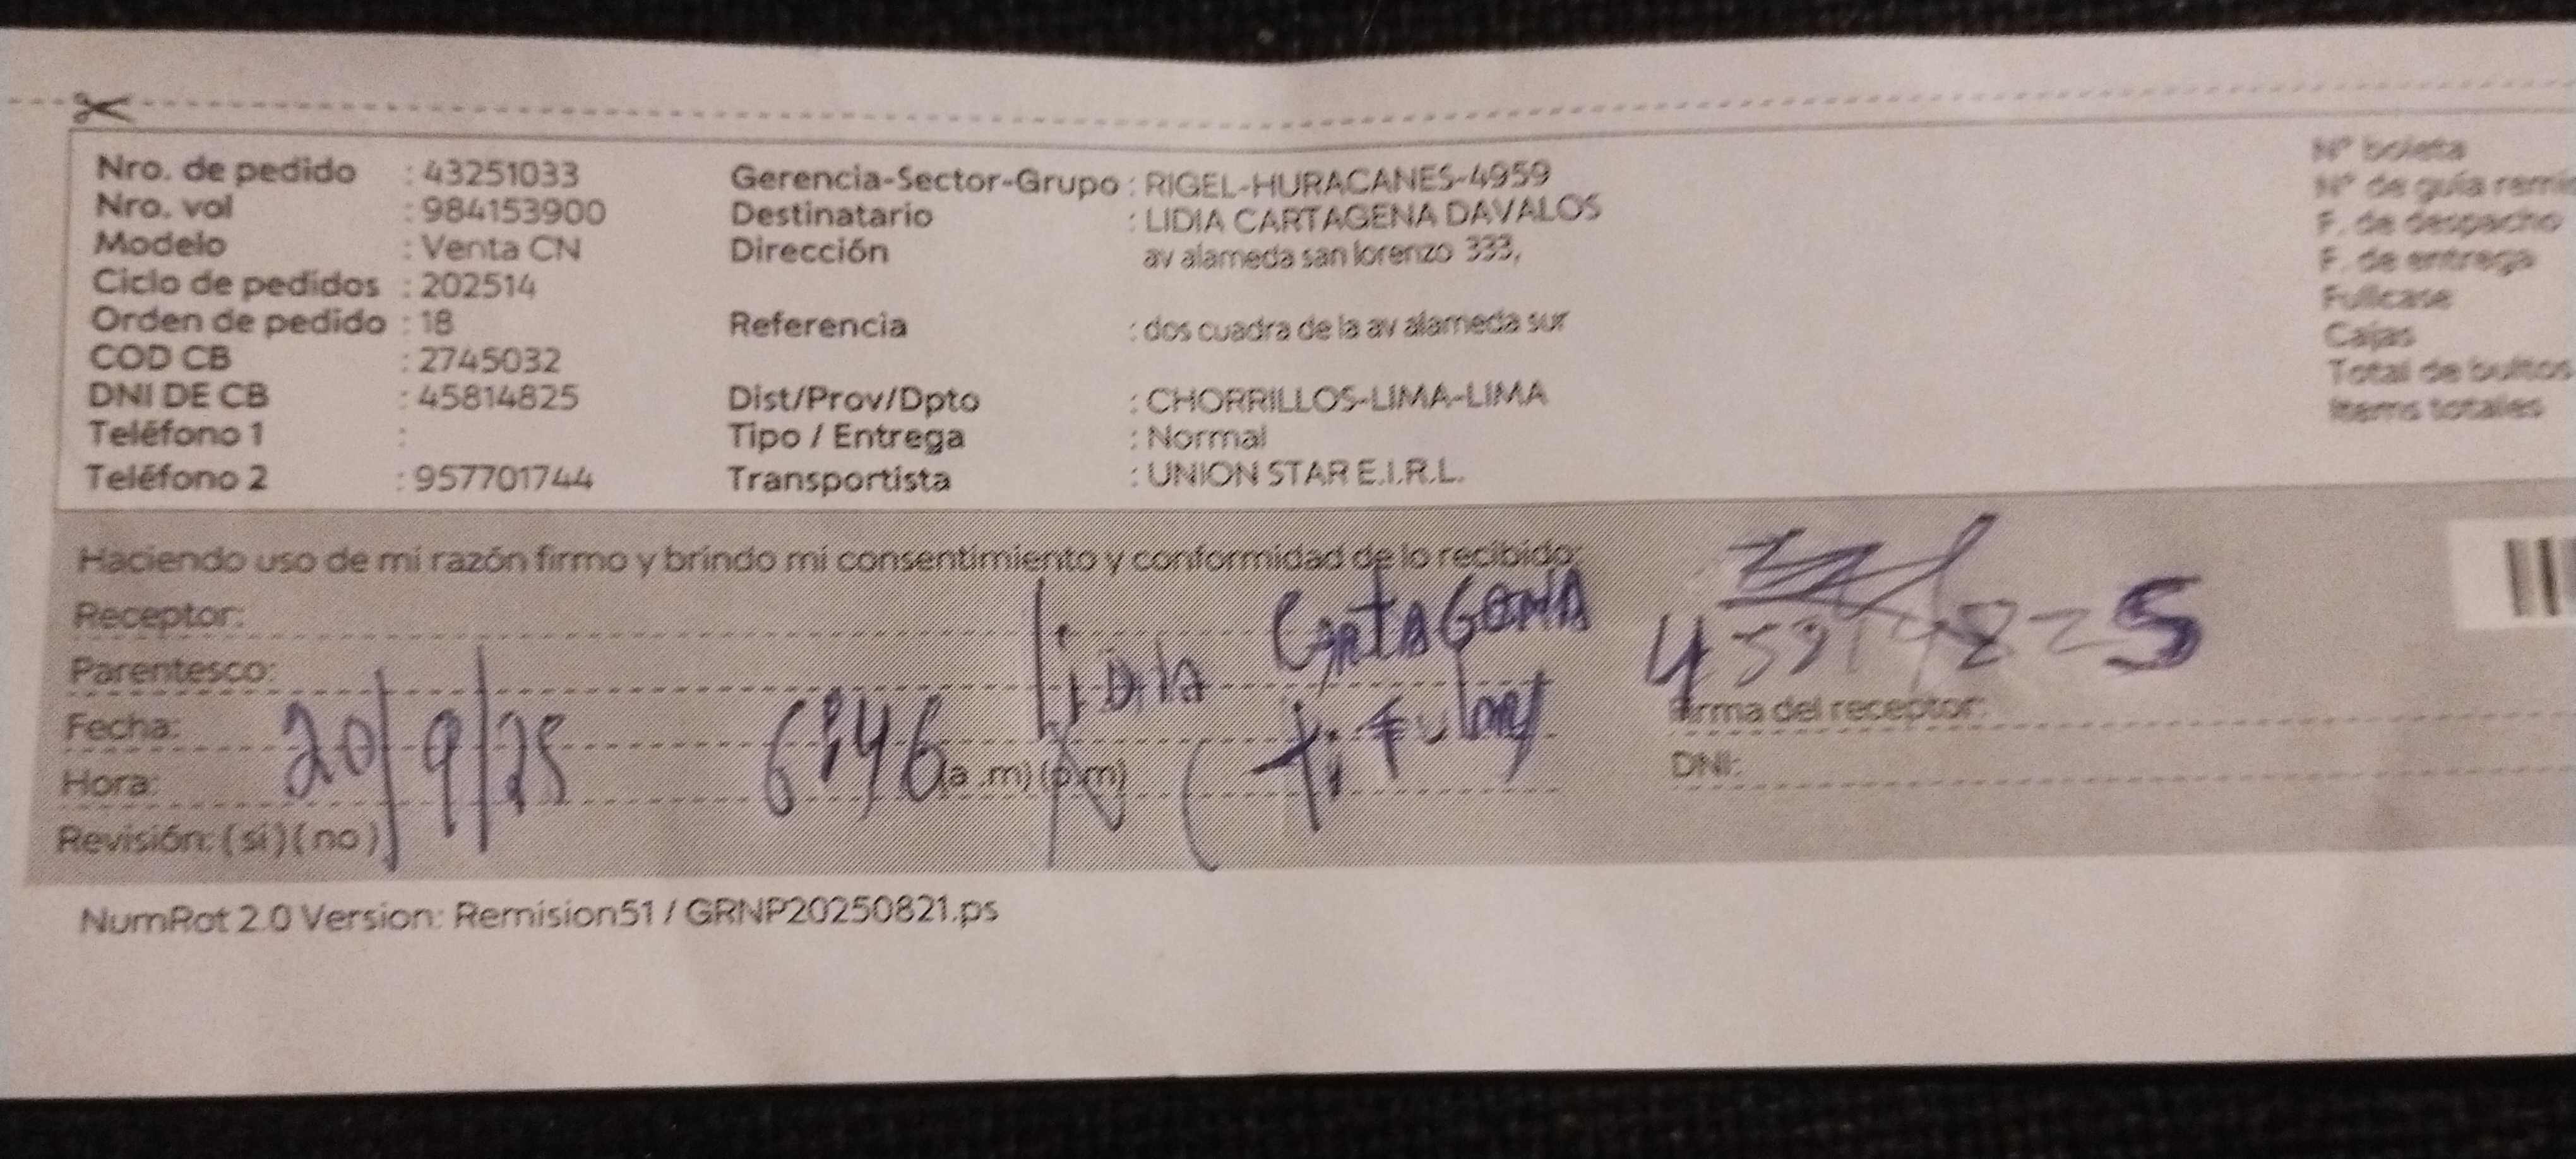 Nro. de pedido : 43251033 Gerencia-Sector-Grupo : RIGEL-HURACANES-4959 N° boleta
Nro. vol : 984153900 Destinatario : LIDIA CARTAGENA DAVALOS N° de guía remi
Modelo : Venta CN Dirección av alameda san lorenzo 333, F. de despacho
Ciclo de pedidos : 202514 F. de entrega
Orden de pedido : 18 Referencia : dos cuadra de la av alameda sur Fullcase
COD CB : 2745032 Cajas
DNI DE CB : 45814825 Dist/Prov/Dpto : CHORRILLOS-LIMA-LIMA Total de bultos
Teléfono 1 : Tipo / Entrega : Normal Items totales
Teléfono 2 : 957701744 Transportista : UNION STAR E.I.R.L.
Haciendo uso de mi razón firmo y brindo mi consentimiento y conformidad de lo recibido:
Receptor: Lidia CARTAGENA
Parentesco: (titular)
Fecha: 20/9/25 Firma del receptor:
Hora: 6:46 (a .m) (p.m) DNI:
Revisión: (si) (no)
NumRot 2.0 Version: Remision51 / GRNP20250821.ps